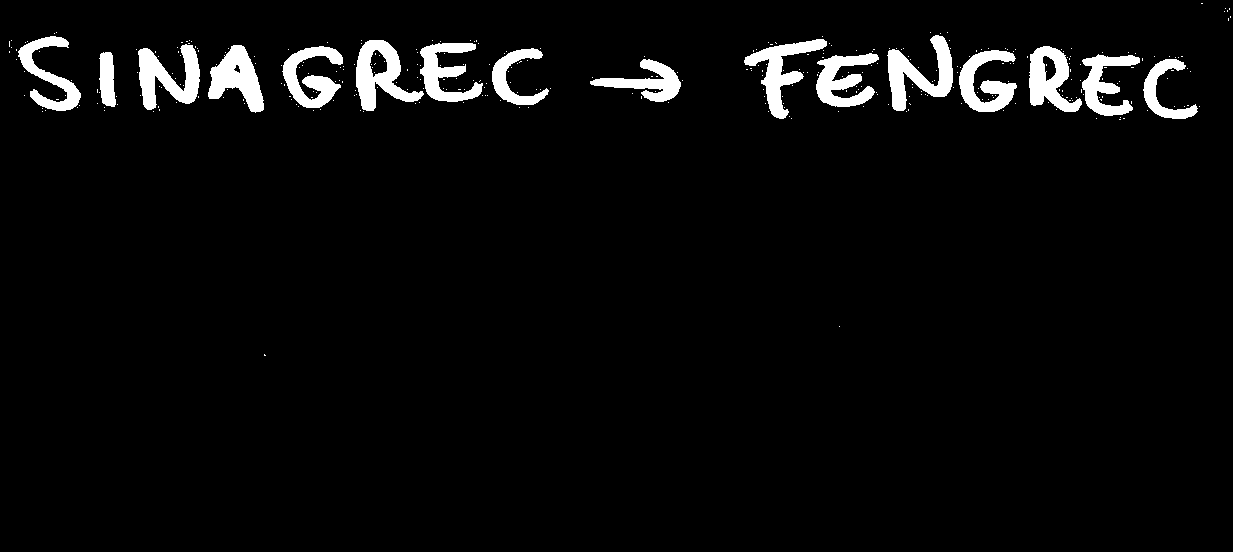 SINAGREC → FENGREC